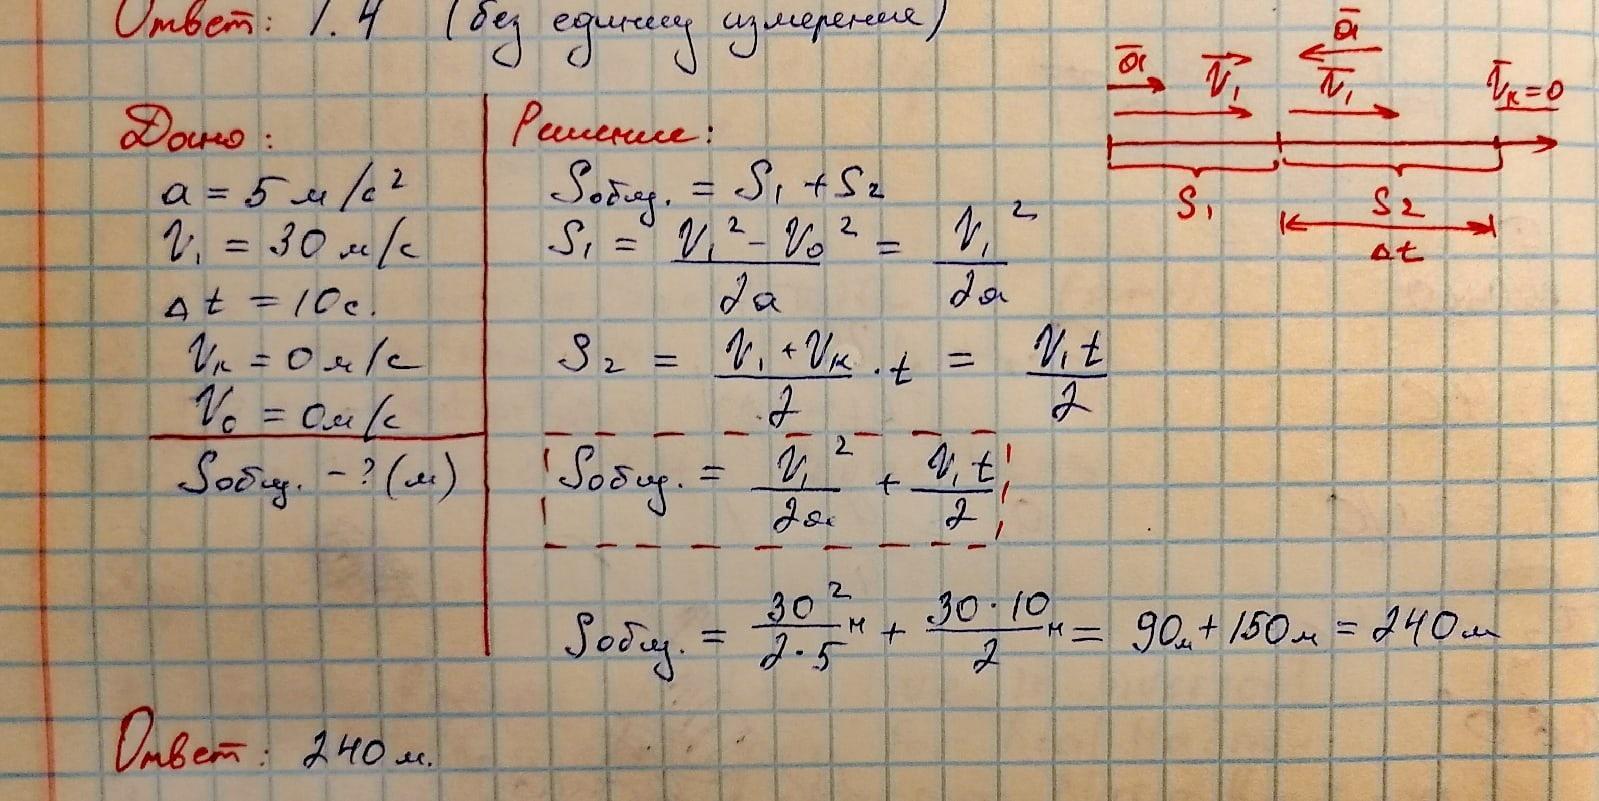 Ответ: 1.4 (без единиц измерения)
Дано:
a = 5 м/с²
V₁ = 30 м/с
Δt = 10с.
Vк = 0 м/с
V₀ = 0м/с
Sобщ. - ? (м)
Решение:
Sобщ. = S₁ + S₂
S₁ = (V₁² - V₀²)/2a = V₁²/2a
S₂ = (V₁ + Vк)/2 · t = V₁t/2
Sобщ. = V₁²/2a + V₁t/2
Sобщ. = 30²/2·5 м + 30·10/2 м = 90м + 150м = 240м
a V₁ a V₁ Vк = 0
S₁ S₂
Δt
Ответ: 240м.